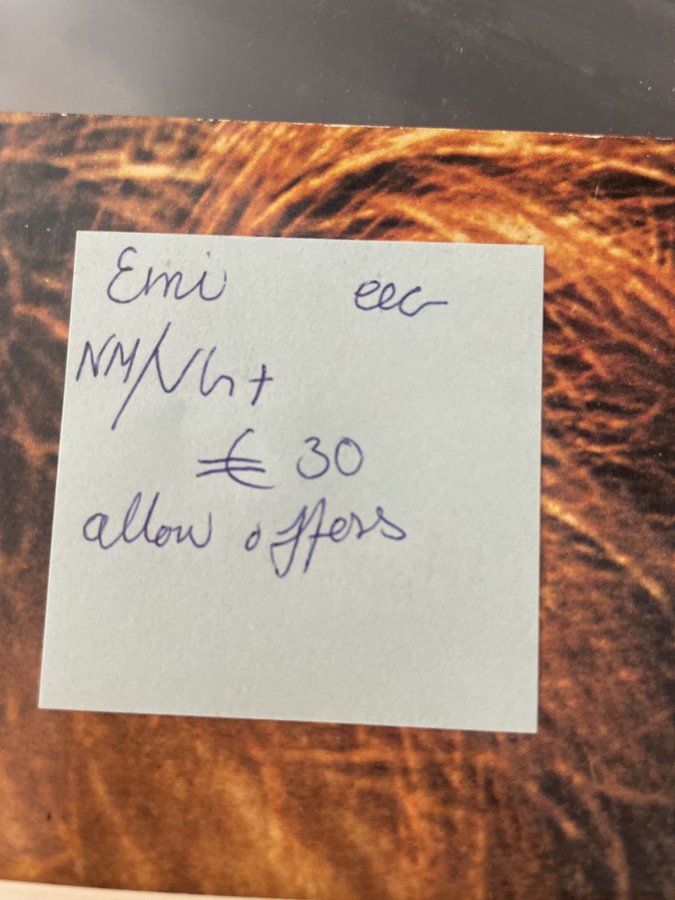 Emi eec
NM/VG+
€ 30
allow offers